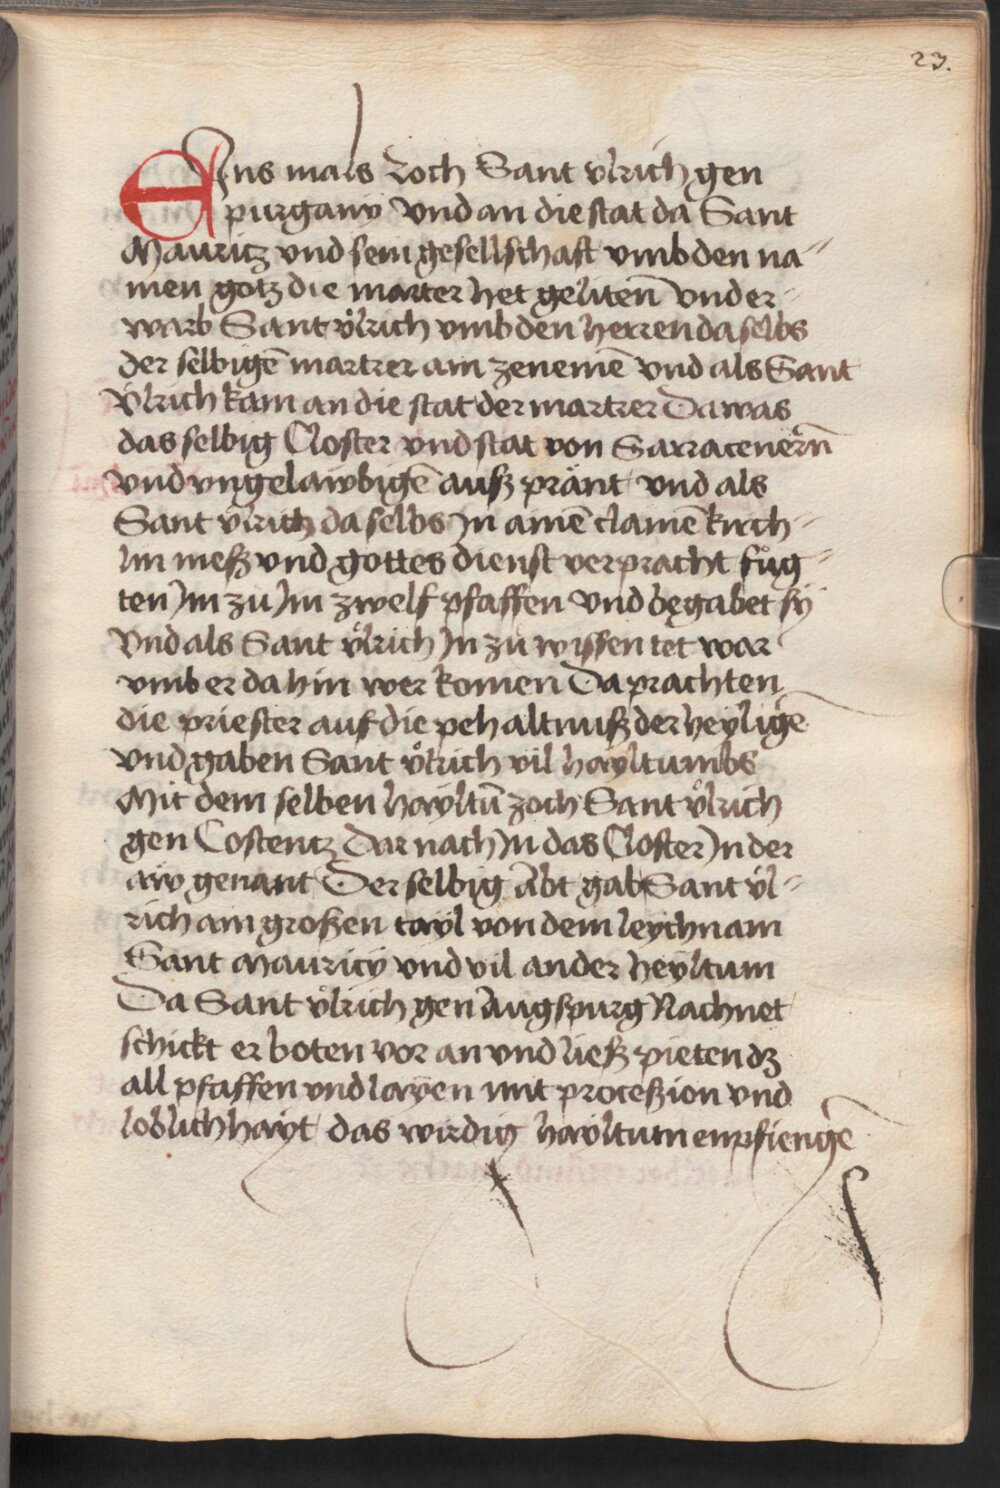 23.
EIns mals zoch Sant vlrich gen
purgany vnd an die stat da Sant
Mauritz vnd sein gesellschaft vmb den na¬
men gotz die marter het geliten̄ vnd er¬
warb Sant vͦlrich vmb den herren daselbs
der selbigē martrer ain zenemē vnd als Sant
Vͦlrich kam an die stat der martrer Da was
das selbig Closter vnd stat von Sarracenern̄
vnd vngelawbigē auß pränt vnd als
Sant vͦlrich da selbs In ainē clainē kirch¬
lin meß vnd gottes dienst verpracht fuͦg¬
ten Im zu Im zwelf pfaffen vnd begabet sÿ
Vnd als Sant vͦlrich In zu wissen tet war
vmb er da hin wer komen Da prachten
die priester auf die pehaltnuß der heÿligē
vnd gaben Sant vͦlrich vil haÿltumbs
Mit dem selben haÿltū zoch Sant vͦlrich
gen Costentz Dar nach In das Closter In der
aw genant Der selbig Abt gab Sant vͦl¬
rich ain großen taÿl von dem leychnam
Sant Mauricÿ vnd vil ander heÿltum
Da Sant vͦlrich gen Augspurg Nachnet
schickt er boten vor an vnd ließ pieten dz
all pfaffen vnd laÿen mit proceßion vnd
loblichhayt das wirdig haÿltum enpfiengē